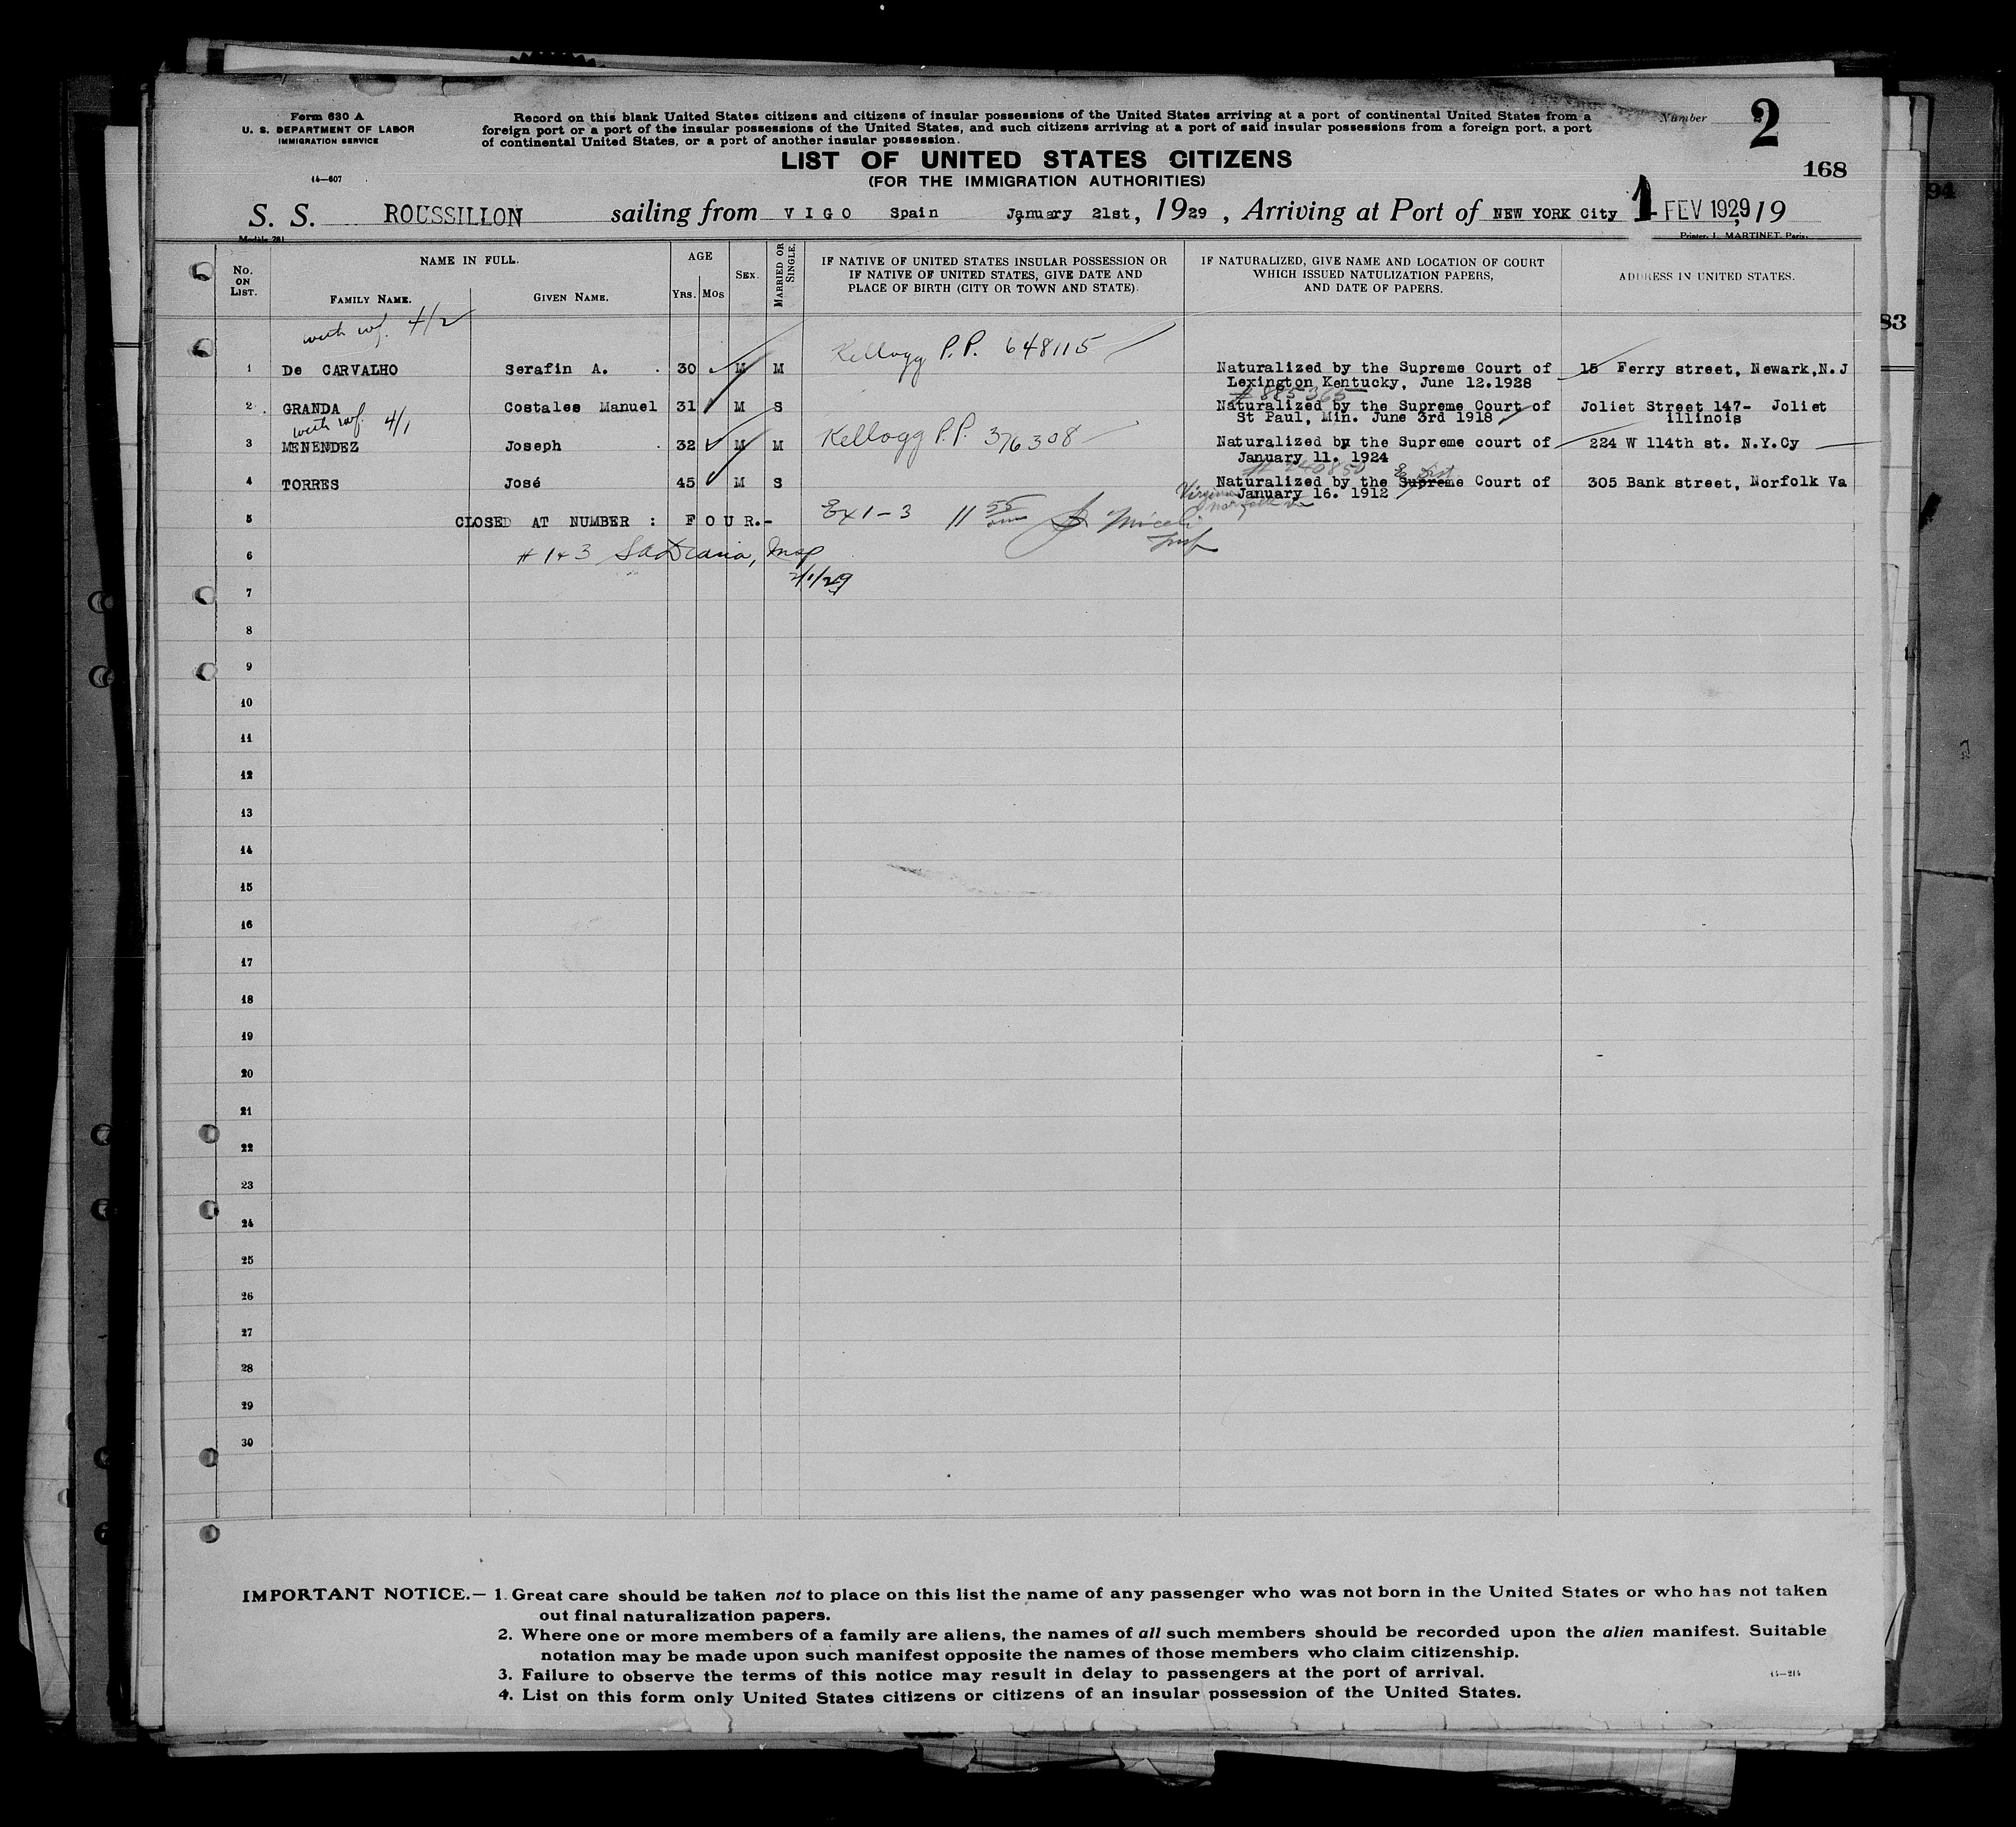 Form 630 A
U. S. DEPARTMENT OF LABOR
IMMIGRATION SERVICE
14—607
Record on this blank United States citizens and citizens of insular possessions of the United States arriving at a port of continental United States from a
foreign port or a port of the insular possessions of the United States, and such citizens arriving at a port of said insular possessions from a foreign port, a port
of continental United States, or a port of another insular possession.
LIST OF UNITED STATES CITIZENS
(FOR THE IMMIGRATION AUTHORITIES)
Number 2
168
94
S. S. ROUSSILLON sailing from VIGO Spain January 21st, 1929, Arriving at Port of NEW YORK City 1 FEV 1929, 19
Modèle 281
Printer, L. MARTINET, Paris.
No. ON LIST.
NAME IN FULL.
FAMILY NAME.
GIVEN NAME.
AGE
YRS. MOS
SEX.
MARRIED OR SINGLE.
IF NATIVE OF UNITED STATES INSULAR POSSESSION OR
IF NATIVE OF UNITED STATES, GIVE DATE AND
PLACE OF BIRTH (CITY OR TOWN AND STATE).
IF NATURALIZED, GIVE NAME AND LOCATION OF COURT
WHICH ISSUED NATULIZATION PAPERS,
AND DATE OF PAPERS.
ADDRESS IN UNITED STATES.
83
with wf. 4/2
Kellogg P.P. 648115
1 De CARVALHO Serafin A. 30 M M Naturalized by the Supreme Court of 15 Ferry street, Newark,N.J
Lexington Kentucky, June 12.1928
# 885365
2 GRANDA Costales Manuel 31 M S Naturalized by the Supreme Court of Joliet Street 147- Joliet
St Paul, Min. June 3rd 1918 illinois
with wf. 4/1
Kellogg P.P. 376308
3 MENENDEZ Joseph 32 M M Naturalized by the Supreme court of 224 W 114th st. N.Y.Cy
January 11. 1924
# 240850
4 TORRES José 45 M S Naturalized by the Supreme Court of 305 Bank street, Norfolk Va
January 16. 1912
Virginia
Norfolk Va
5 CLOSED AT NUMBER : FOUR.- Ex 1-3 11 55 am
Insp
6 # 1+3 Insp
2/1/29
7
8
9
10
11
12
13
14
15
16
17
18
19
20
21
22
23
24
25
26
27
28
29
30
IMPORTANT NOTICE.— 1. Great care should be taken not to place on this list the name of any passenger who was not born in the United States or who has not taken
out final naturalization papers.
2. Where one or more members of a family are aliens, the names of all such members should be recorded upon the alien manifest. Suitable
notation may be made upon such manifest opposite the names of those members who claim citizenship.
3. Failure to observe the terms of this notice may result in delay to passengers at the port of arrival.
4. List on this form only United States citizens or citizens of an insular possession of the United States.
14—214